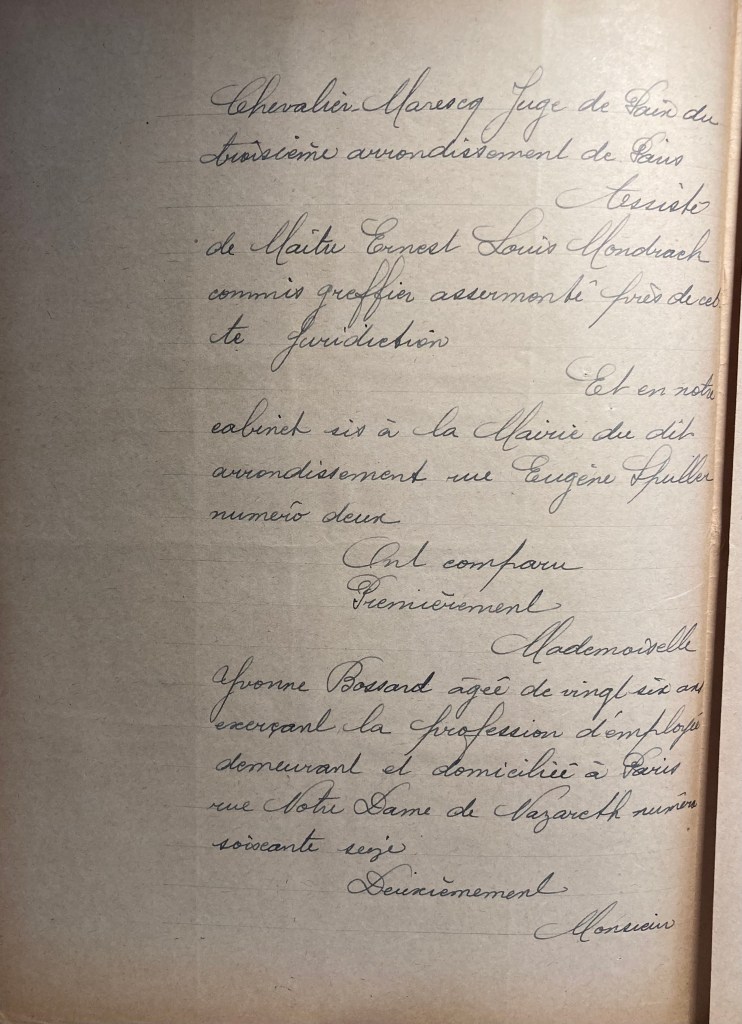 Chevalier-Marescq Juge de Paix du
troisième arrondissement de Paris
Assisté
de Maître Ernest Louis Mondrack
commis greffier assermenté près de cet-
te juridiction
Et en notre
cabinet sis à la Mairie du dit
arrondissement rue Eugène Spuller
numéro deux
Ont comparu
Premièrement
Mademoiselle
Yvonne Bossard âgée de vingt six ans
exerçant la profession d'employée
demeurant et domiciliée à Paris
rue Notre Dame de Nazareth numéro
soixante seize
Deuxièmement
Monsieur